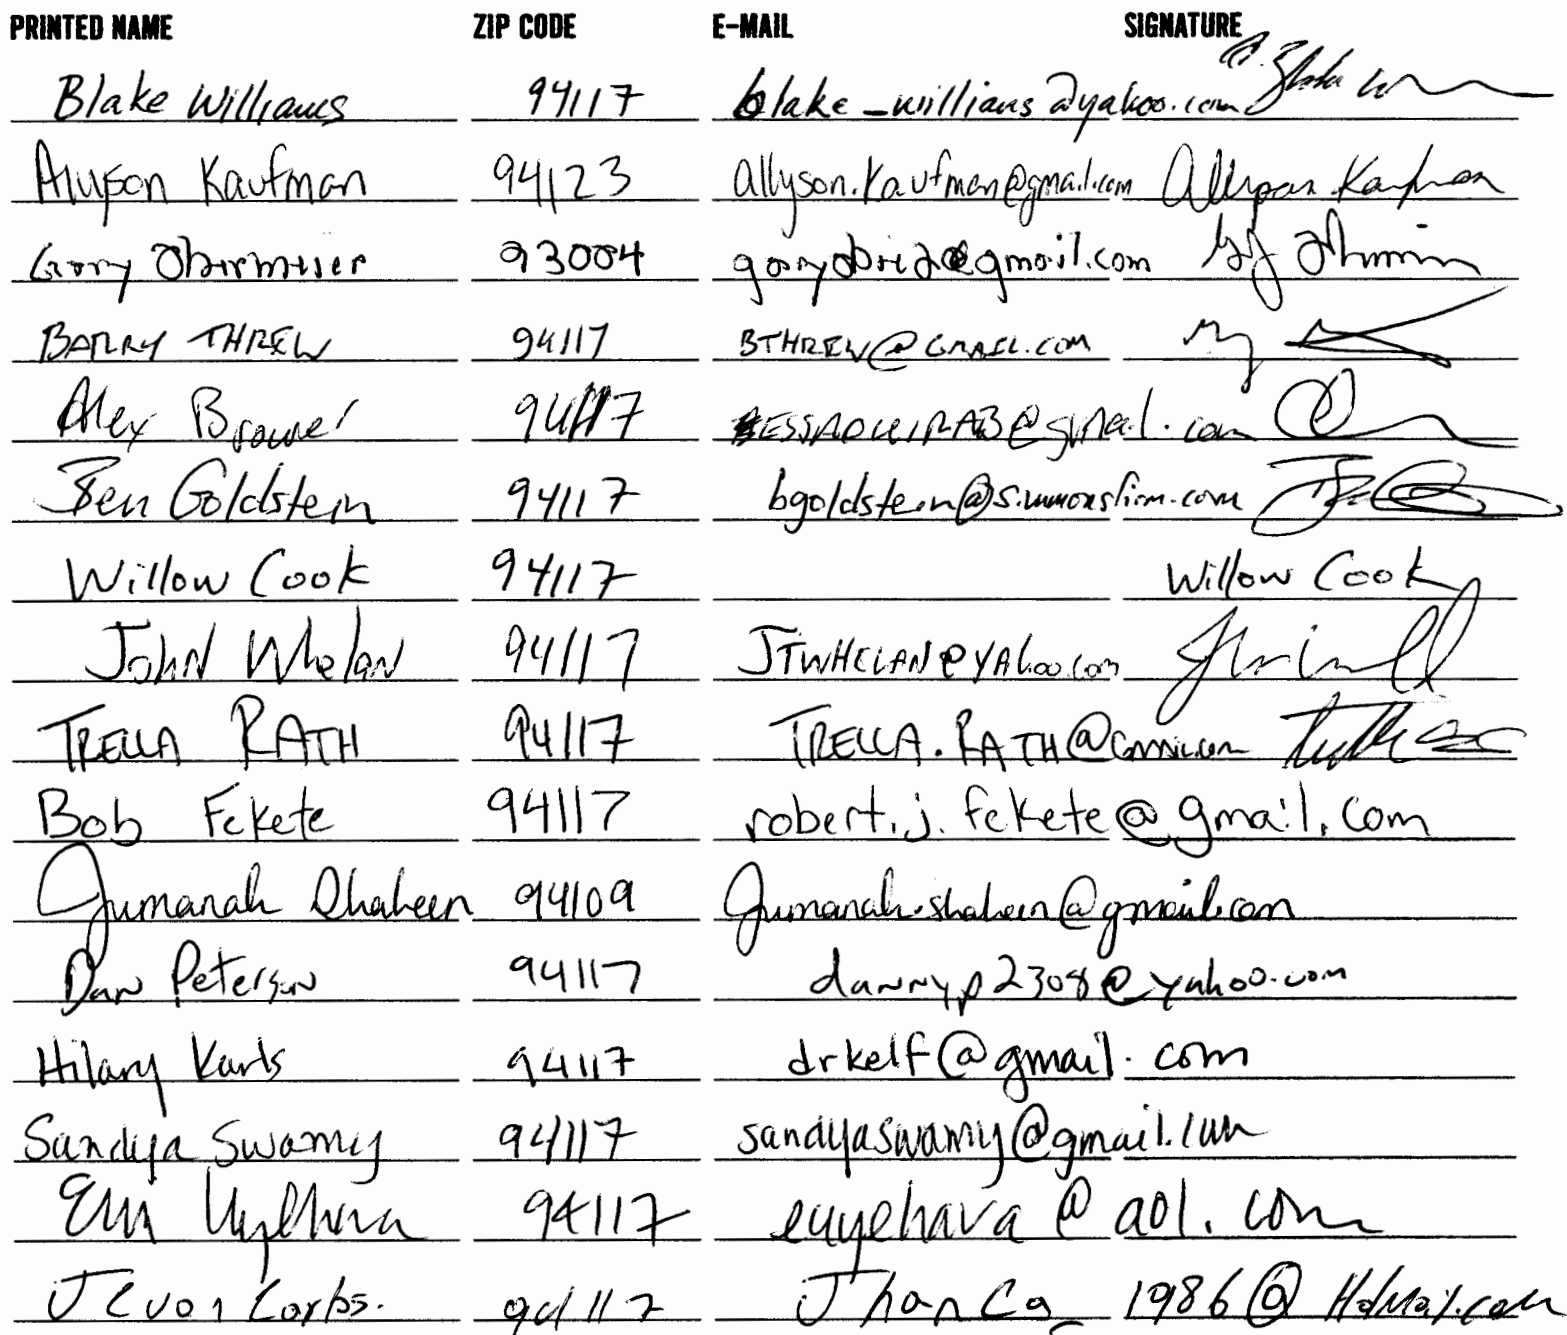 PRINTED NAME ZIP CODE E-MAIL SIGNATURE
Blake Williams 94117 blake_williams@yahoo.com
Allyson Kaufman 94123 allyson.kaufman@gmail.com Allyson Kaufman
Gary 93004 @gmail.com
BARRY THREW 94117 BTHREW@GMAIL.COM
Alex Brower 94117
Ben Goldstein 94117 bgoldstein@simmonsfirm.com
Willow Cook 94117 Willow Cook
John Whelan 94117 JTWHELAN@YAhoo.com
TRELLA RATH 94117 TRELLA.RATH@GMAIL.com
Bob Fekete 94117 robert.j.fekete@gmail.com
Jumanah Shaheen 94109 Jumanah.shaheen@gmail.com
Dan Peterson 94117 dannyp2308@yahoo.com
Hilary Karls 94117 drkelf@gmail.com
Sandya Swamy 94117 sandyaswamy@gmail.com
Erin Uyehara 94117 euyehara@aol.com
94117 1986@HotMail.com